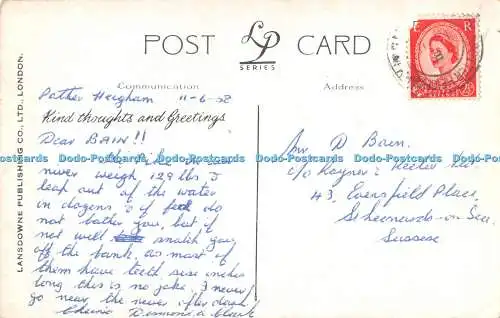 POST CARD
LP
SERIES
Communication
Address
LANSDOWNE PUBLISHING CO., LTD., LONDON.
11-6-58
Kind thoughts and Greetings
Dear BAIN!!
never weigh 129 lbs. &
leap out of the water
in dozens & if do
not bather you, but if
not well snatch you
off the bank, as most of
them have teeth inches
long this is no joke. I never
go near the after dark
Cheerio Desmond Clark
Mr D Bain
c/o Rayner
43, Eversfield Place,
St Leonards-on-Sea
Sussex
E R
2½
Dodo-Postcards Dodo-Postcards Dodo-Postcards Dodo-Postcards Dodo-Postcards